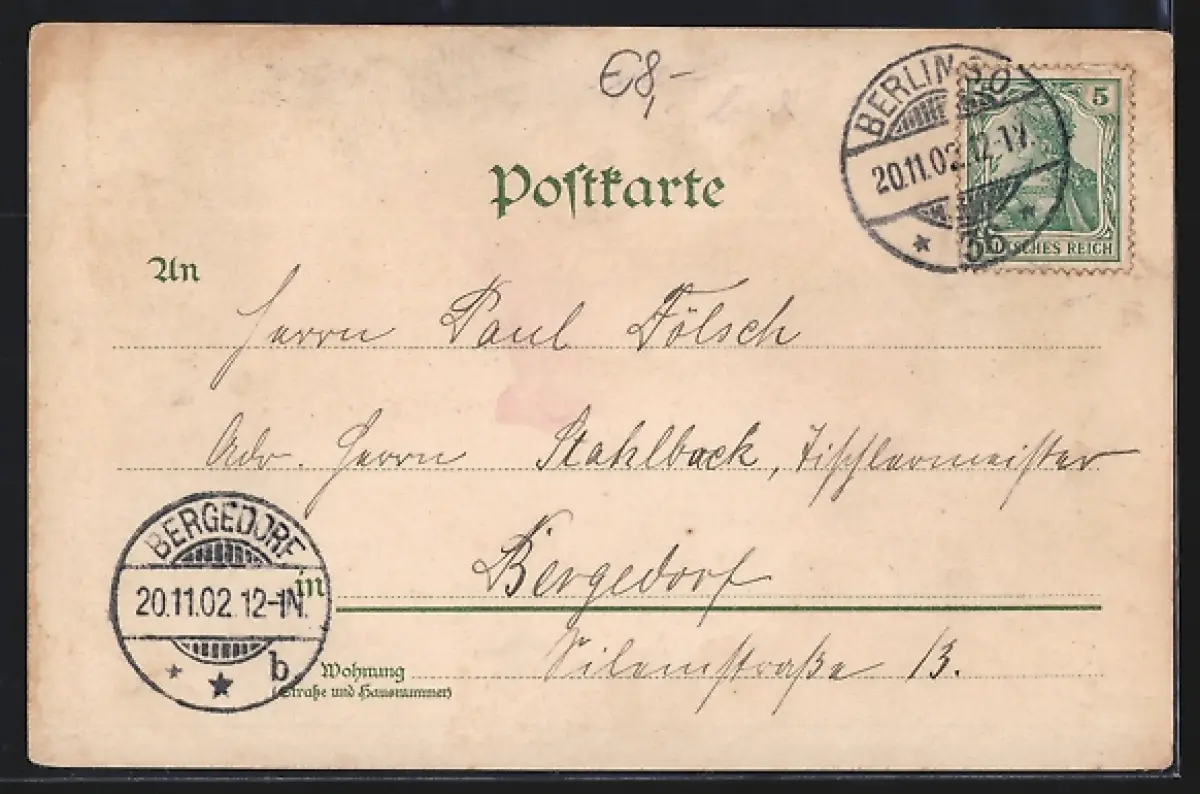 €8,-
BERLIN S.O.
20.11.02. 12-1N.
36
5
DEUTSCHES REICH
Postkarte
An
Herrn Paul Fölsch
Adr. Herrn Stahlbuck, Tischlermeister
BERGEDORF
20.11.02. 12-1N.
b
in Bergedorf
Wohnung
(Straße und Hausnummer)
13.